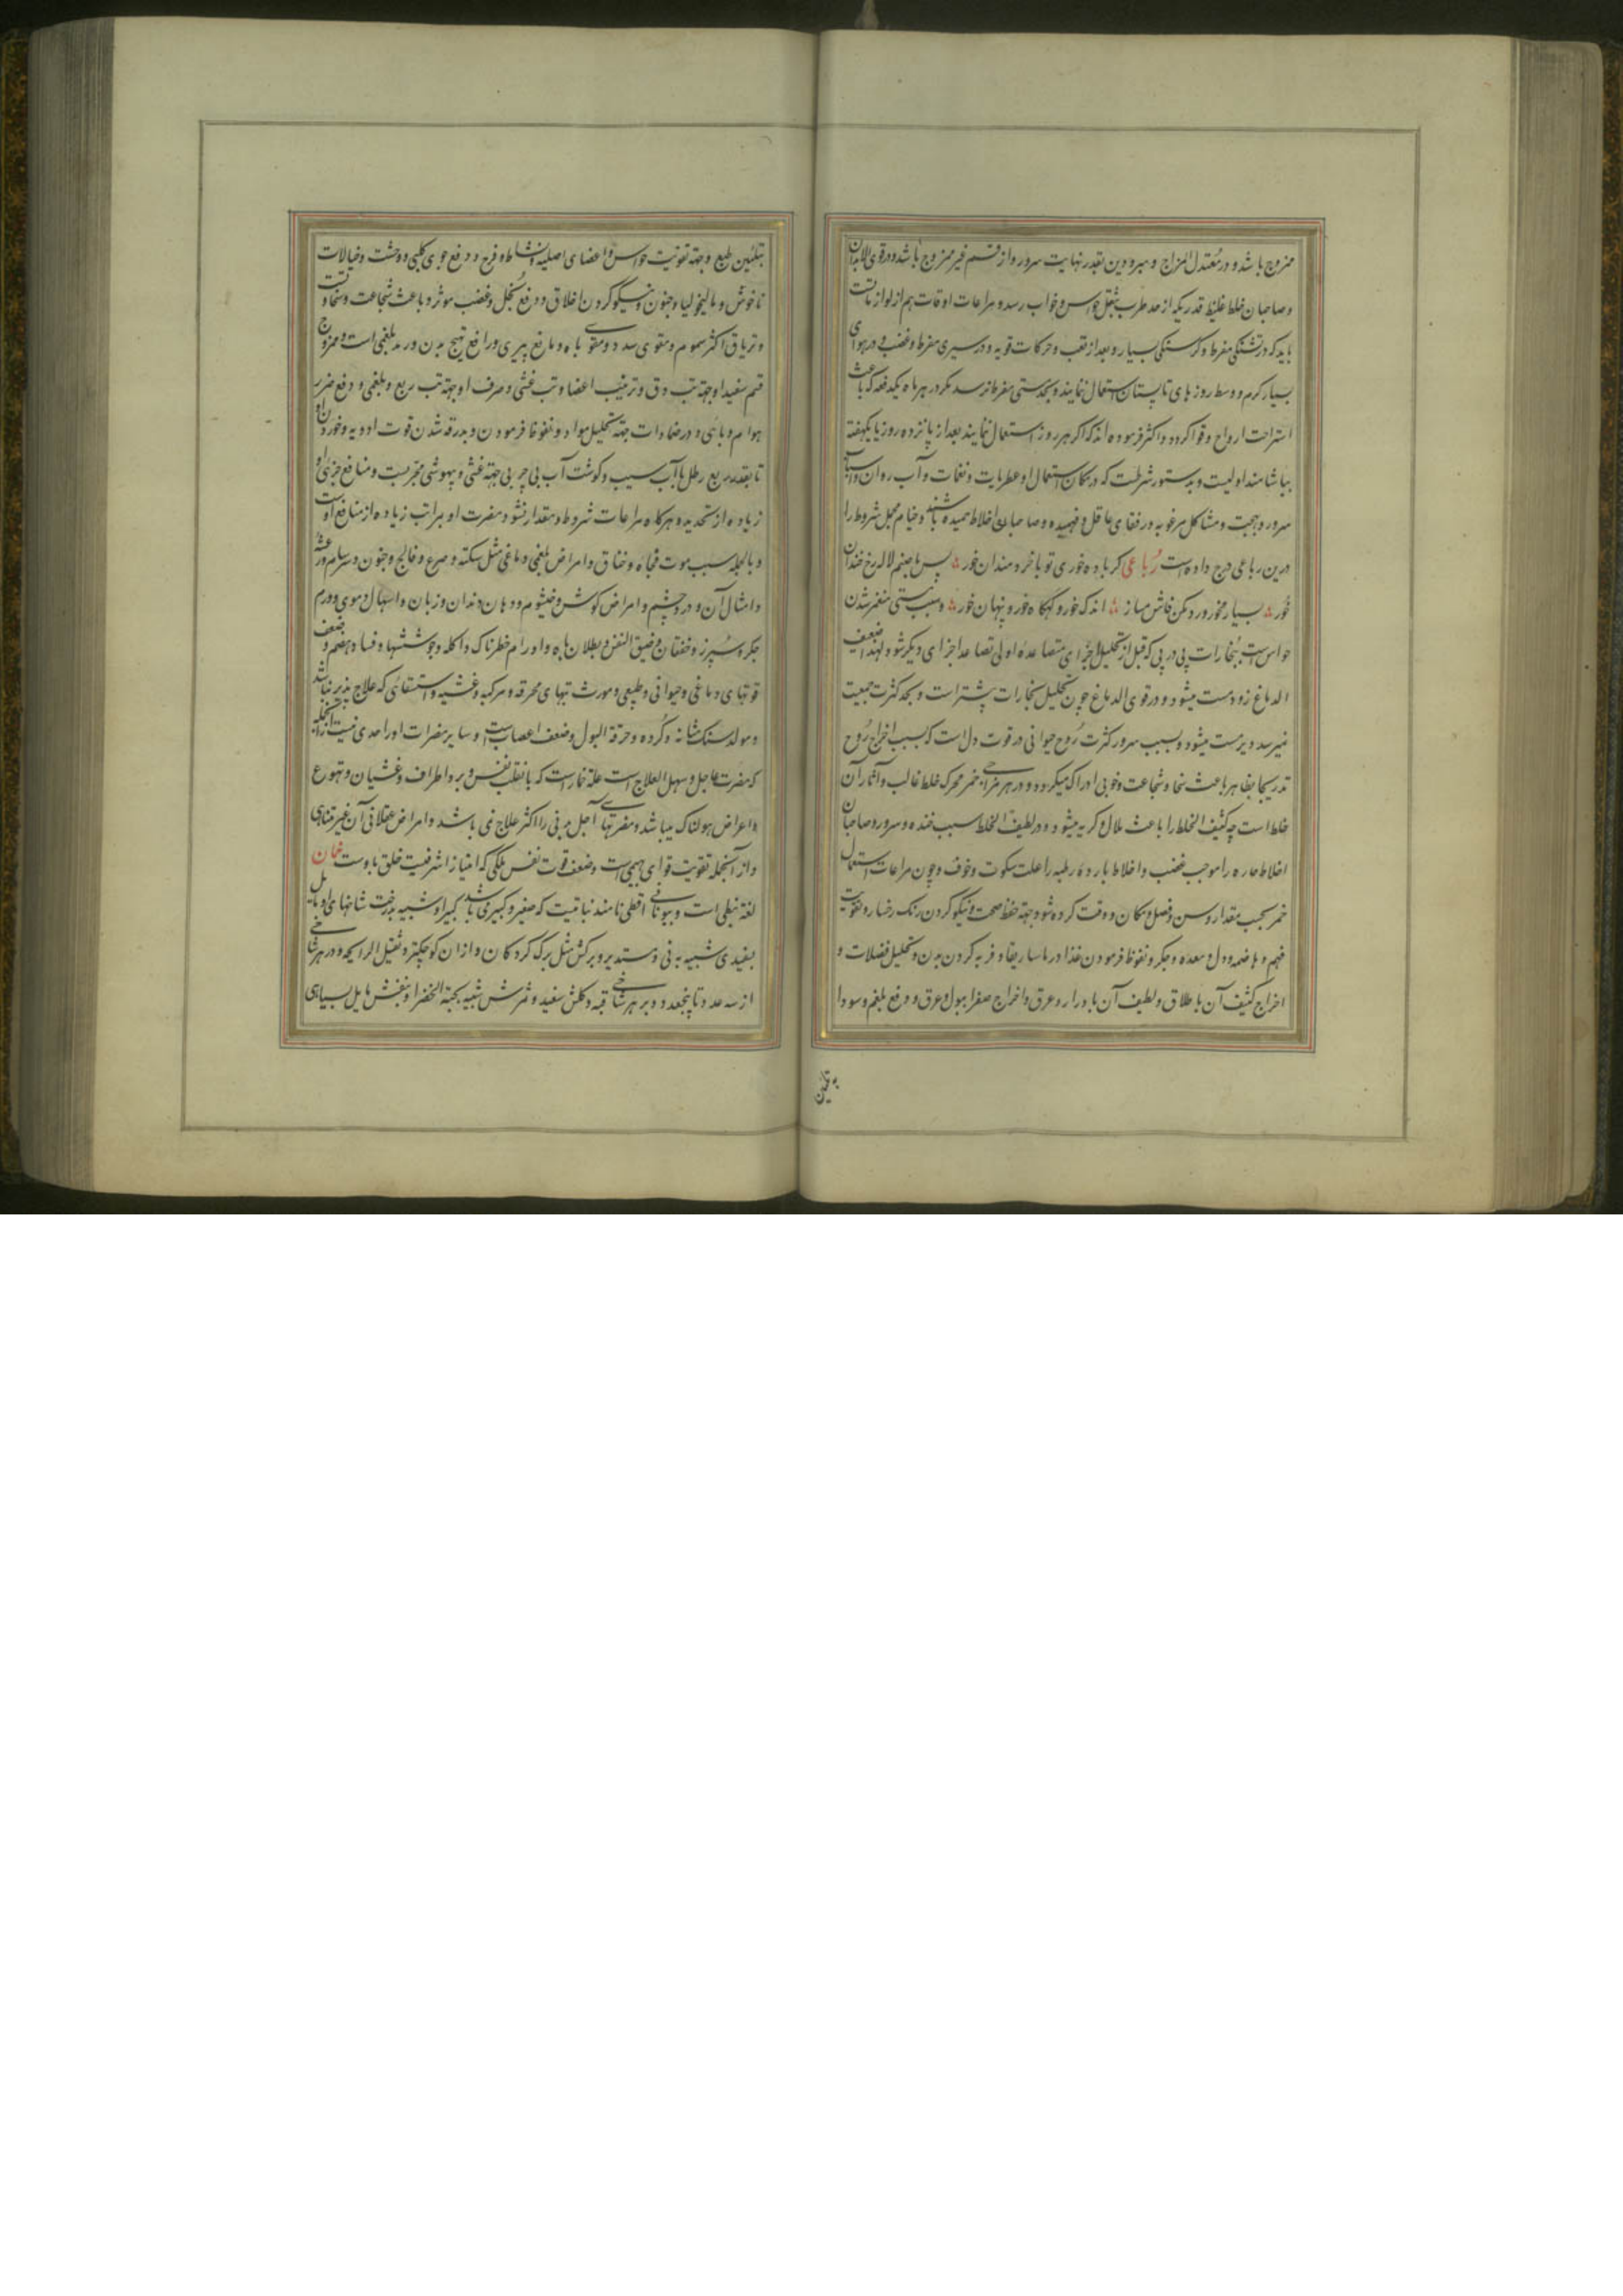 ممزوج باشد و در معتدل المزاج و مبرودین بقدر نهایت سرور و از قسم غیر ممزوج باشد و در قوی الابدان
و صاحبان خلط غلیظ قدریکه از حد طرب بثقل حواس و خواب رسد و مراعات اوقات هم از لوازمست
باید که در تشنکی مفرط و کرسنکی بسیار و بعد از تعب و حرکات قویه و در سیری مفرط و غضب و در هوای
بسیار کرم و وسط روز های تابستان استعمال ننمایند و بحد مستی مفرط نرسد مکر در هر ماه یکدفعه که باعث
استراحت ارواح و قوا کردد و اکثر فرموده اند که اکر هر روز استعمال نمایند بعد از پانزده روز یا یکهفته
بیاشامند اولیست و بدستور شرطست که در مکان استعمال او عطریات و نغمات و آب روان و اسباب
سرور و بهجت و مشاکل مرغوبه و رفقای عاقل و فهمیده و صاحبان اخلاط حمیده باشند و خیام مجمل شروط را
درین رباعی درج داده است رباعی کر باده خوری تو با خردمندان خور یا با صنم لاله رخ خندان
خور بسیار مخور ورد مکن فاش مساز اندک خور و کهکاه خور و پنهان خور و سبب مستی منغمر شدن
حواس است ببخارات پی در پی که قبل از تحلیل اجزای متصاعده اولی تصاعد اجزای دیکر شود و لهذا ضعیف
الدماغ زود مست میشود و در قوی الدماغ چون تحلیل بخارات پیشتر است و بحد کثرت جمعیت
نمیرسد دیر مست میشود و سبب سرور کثرت روح حیوانی و قوت دل است که سبب اخراج روح
تدریجا بظاهر باعث سخا و شجاعت و خوبی ادراک میکردد و در هر مزاجی خمر محرک خلط غالب و آثار آن
خلط است چه کثیف الخلط را باعث ملال و کریه میشود و در لطیف الخلط سبب خنده و سرور و صاحبان
اخلاط حاره را موجب غضب و اخلاط بارده رطبه را علت سکوت و خوف و چون مراعات استعمال
خمر بحسب مقدار و سن و فصل و مکان و وقت کرده شود جهة حفظ صحت و نیکو کردن رنک رخسار و تقویت
فهم و هاضمه و دل و معده و جکر و نفوذ فرمودن غذا در ماساریقا و فربه کردن بدن و تحلیل فضلات و
اخراج کثیف آن باطلاق و لطیف آن بادرار و عرق و اخراج صفرا ببول و عرق و دفع بلغم و سودا
بتلیین
بتلیین طبع و جهة تقویت حواس و اعضای اصلیه و نشاط و فرح و دفع جوع کلبی و وحشت و خیالات
ناخوش و مالیخولیا و جنون و نیکو کردن اخلاق و دفع بخل و غضب موثر و باعث شجاعت و سخاوتست
و تریاق اکثر سموم و مقوی سدد و مقوی باه و مانع پیری و رافع تهیج بدن و رمد بلغمی است و ممزوج
قسم سفید او جهة تب دق و ترطیب اعضا و تب غشی و صرف او جهة تب ربع و بلغمی و دفع ضرر
هوام و بائی و در ضمادات جهة تحلیل مواد و نفوذ فرمودن و بدرقه شدن قوت ادویه و خوردن او
تا بقدر ربع رطل با آب سیب و کوشت آب بی چربی جهة غشی و بیهوشی مجربست و منافع جزئی او
زیاده از تحدید و هرکاه مراعات شروط و مقدار نشود مضرت او بمراتب زیاده از منافع اوست
و بالجمله سبب موت فجاه و خناق و امراض بلغمی دماغی مثل سکته و صرع و فالج و جنون و سرسام و رعشه
و امثال آن و درد چشم و امراض کوش و خیشوم و دهان و دندان و زبان و اسهال دموی و ورم
جکر و سپرز و خفقان و ضیق النفس و بطلان باه و اورام خطرناک و آکله و جوششها و فساد هضم و ضعف
قوتهای دماغی و حیوانی و طبیعی و مورث تبهای محرقه و مرکبه و غشیه و استسقائی که علاج پذیر نباشد
و مولد سنک مثانه و کرده و حرقة البول و ضعف اعصاب است و سایر مضرات او را حدی نیست از آنجمله
که مضرت عاجل و سهل العلاج است علة خمار است که با تقلب نفس و برد اطراف و غشیان و تهوع
و اعراض هولناک میباشد و مضرتهای آجل بدنی را اکثر علاج نمی باشد و امراض عقلانی آن غیر متناهی
و از آنجمله تقویت قوای بهیمی است و ضعف قوت نفس ملکی که امتیاز اشرفیت خلق باوست خمان
لغة نبطی است و بیونانی اقطی نامند نباتیست که صغیر و کبیر می باشد کبیر او شبیه بدرخت شاخهای او مایل
بسفیدی شبیه به نی و مستدیر و برکش مثل برک کردکان و از ان کوچکتر و ثقیل الرایحه و در هر شاخی
از سه عدد تا پنجعدد و بر هر شاخی قبه و کلش سفید و ثمرش شبیه بحبة الخضرا و بنفش مایل بسیاهی